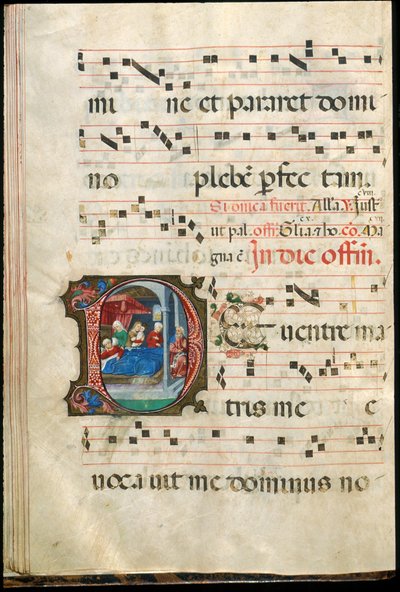 mi ne et pararet domi
no plebē ꝑfec tam.
Si d̄nica fuerit. Alla. ℣. Iust̄ .cviii.
ut pal. off. Gl̄ia ⁊ ho. cx. co. Ma cvii.
gna ē. In die offm̄.
De uentre ma
tris me e
uoca uit me dominus no